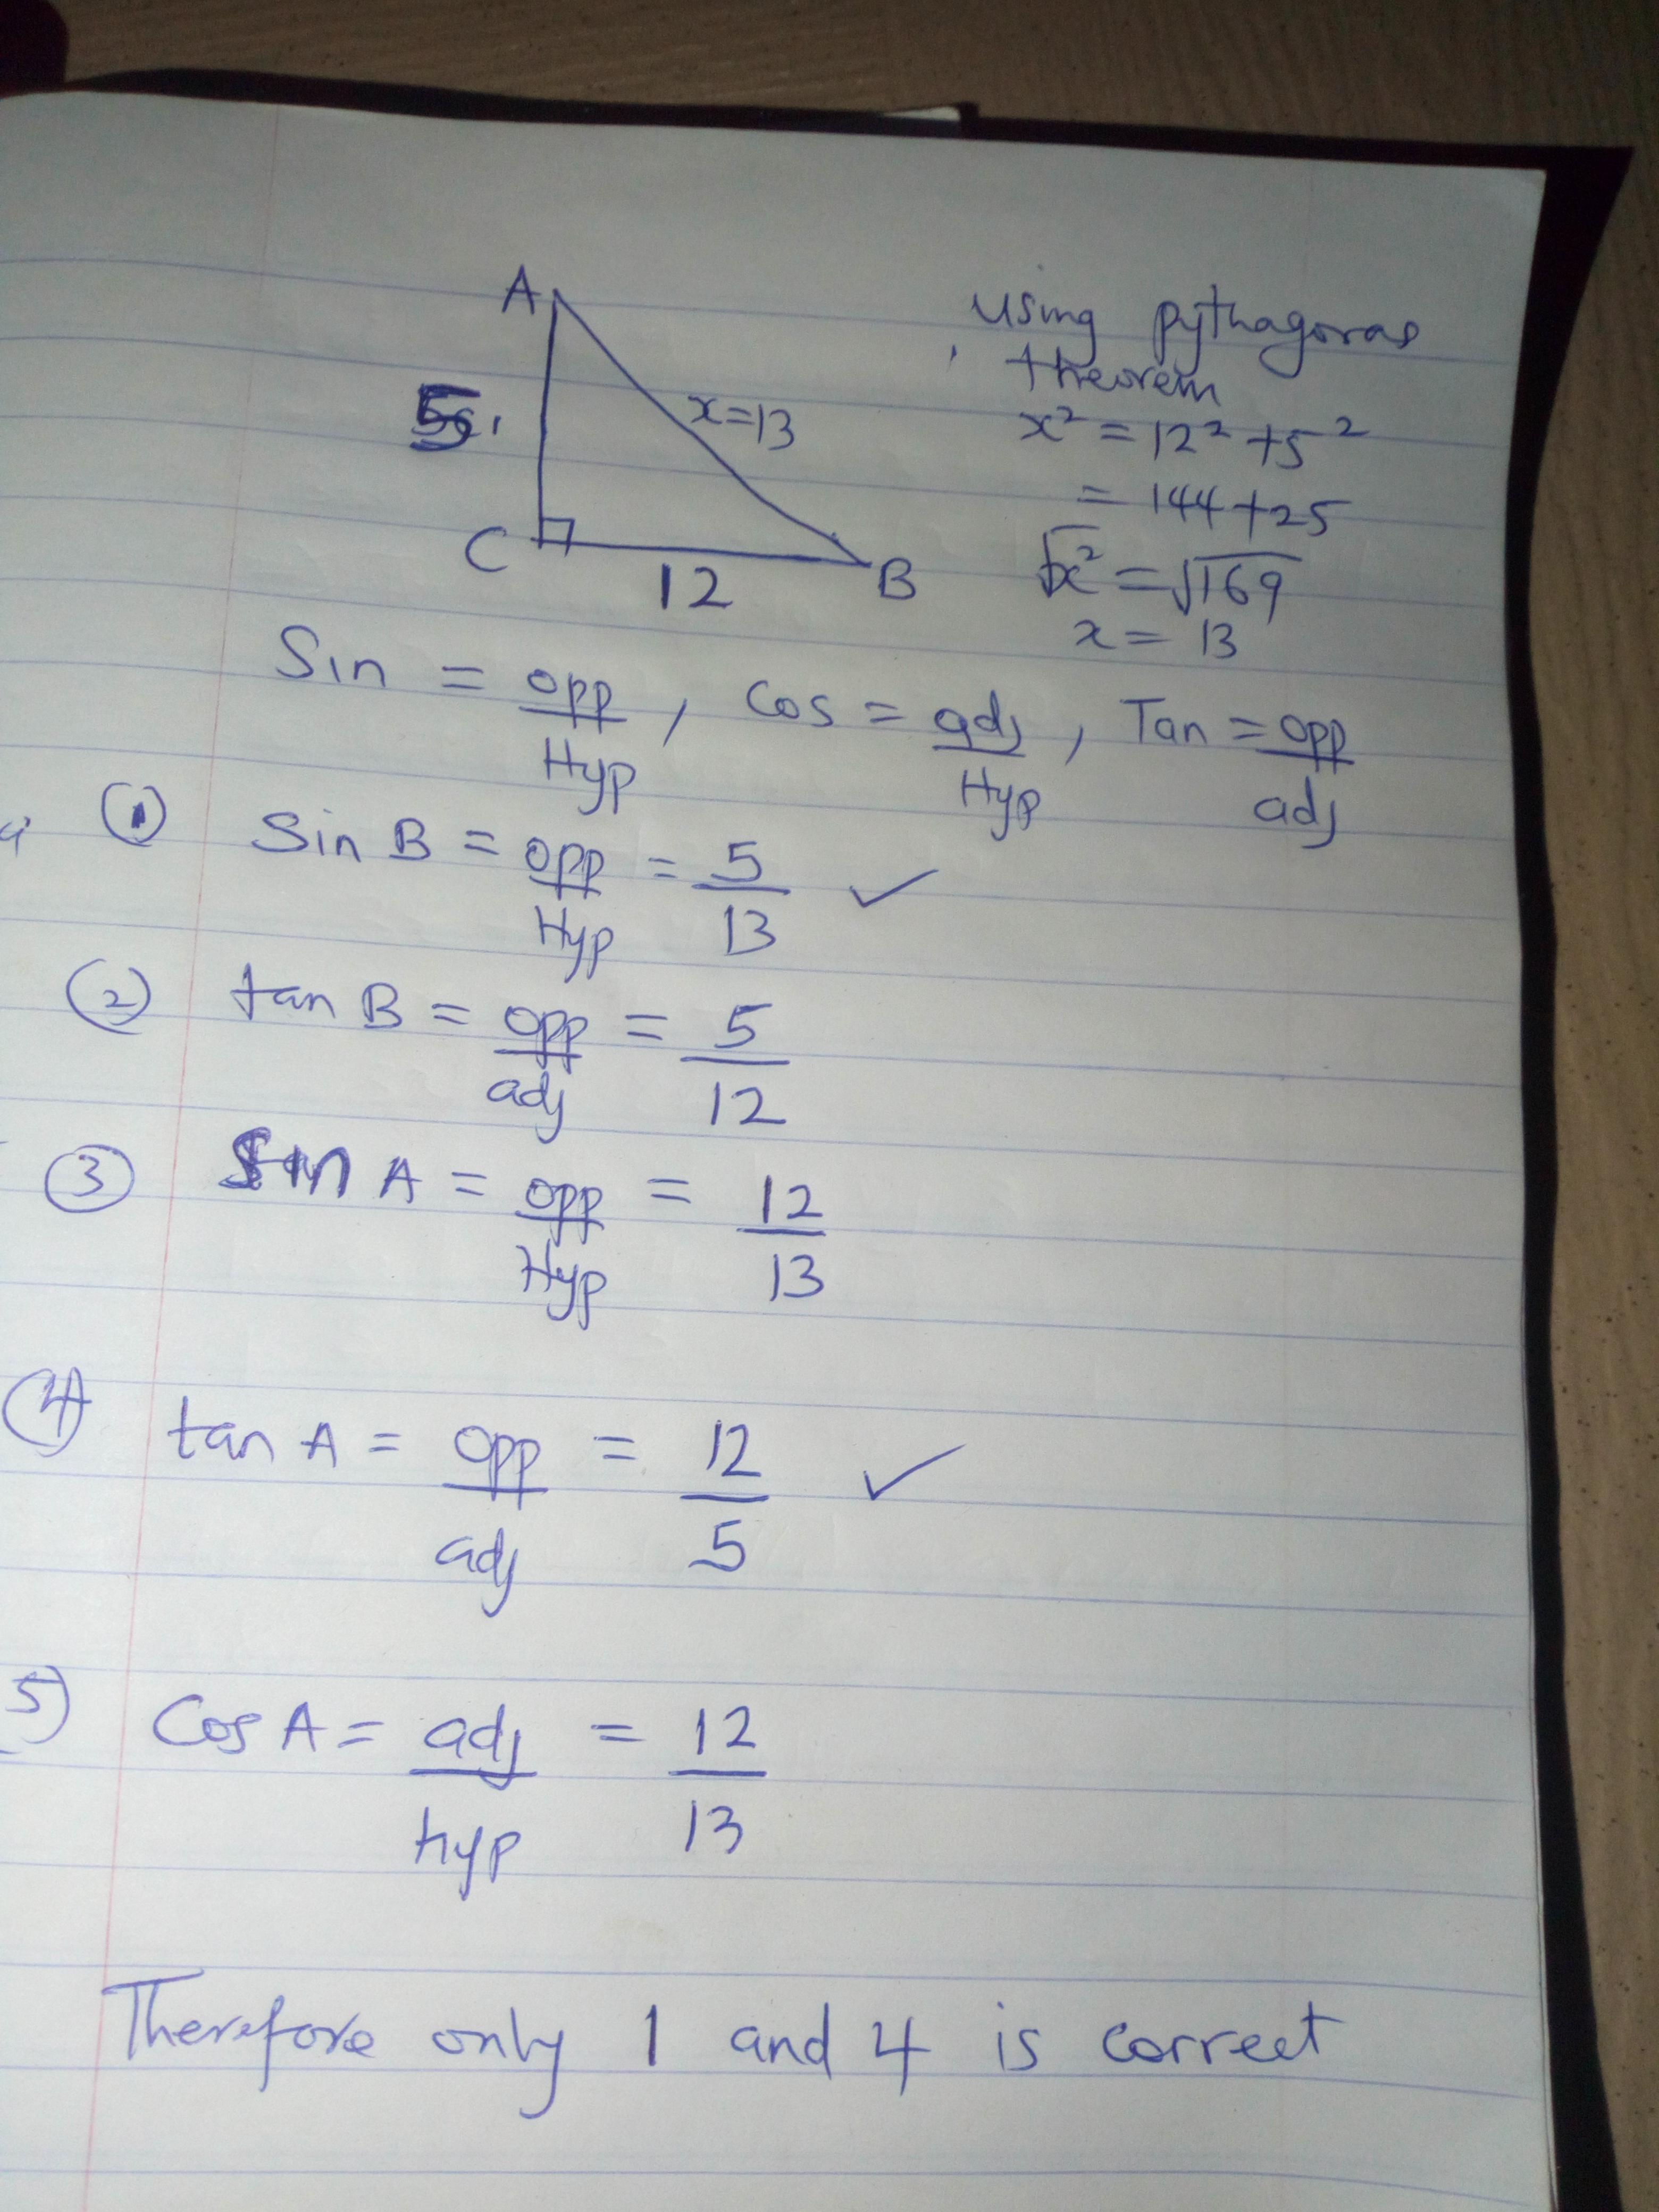 A
5
x=13
C
12
B
Using pythagoras
theorem
x² = 12² + 5²
= 144 + 25
√x² = √169
x = 13
Sin = opp/Hyp, Cos = adj/Hyp, Tan = opp/adj
① Sin B = opp/Hyp = 5/13 ✓
② tan B = opp/adj = 5/12
③ Sin A = opp/Hyp = 12/13
④ tan A = opp/adj = 12/5 ✓
5) Cos A = adj/hyp = 12/13
Therefore only 1 and 4 is correct